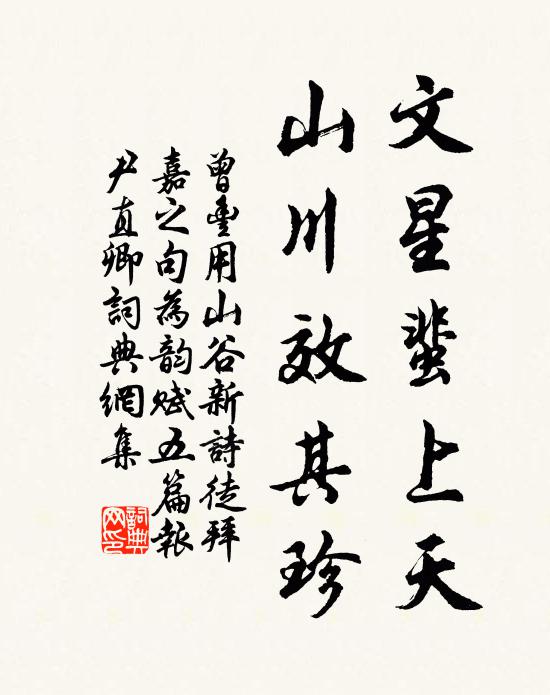 文星蜚上天
山川效其珍
曾豐用山谷新詩徒拜
嘉之句為韵賦五篇報
尹直卿詞典網集
詞典
网印